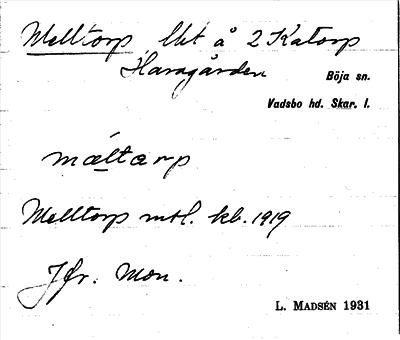 Melltorp lht å 2 Katorp
Haragården
Böja sn.
Vadsbo hd. Skar. l.
mæltarp
Melltorp mtl. kb. 1919
Jfr. Mon.
L. MADSÉN 1931